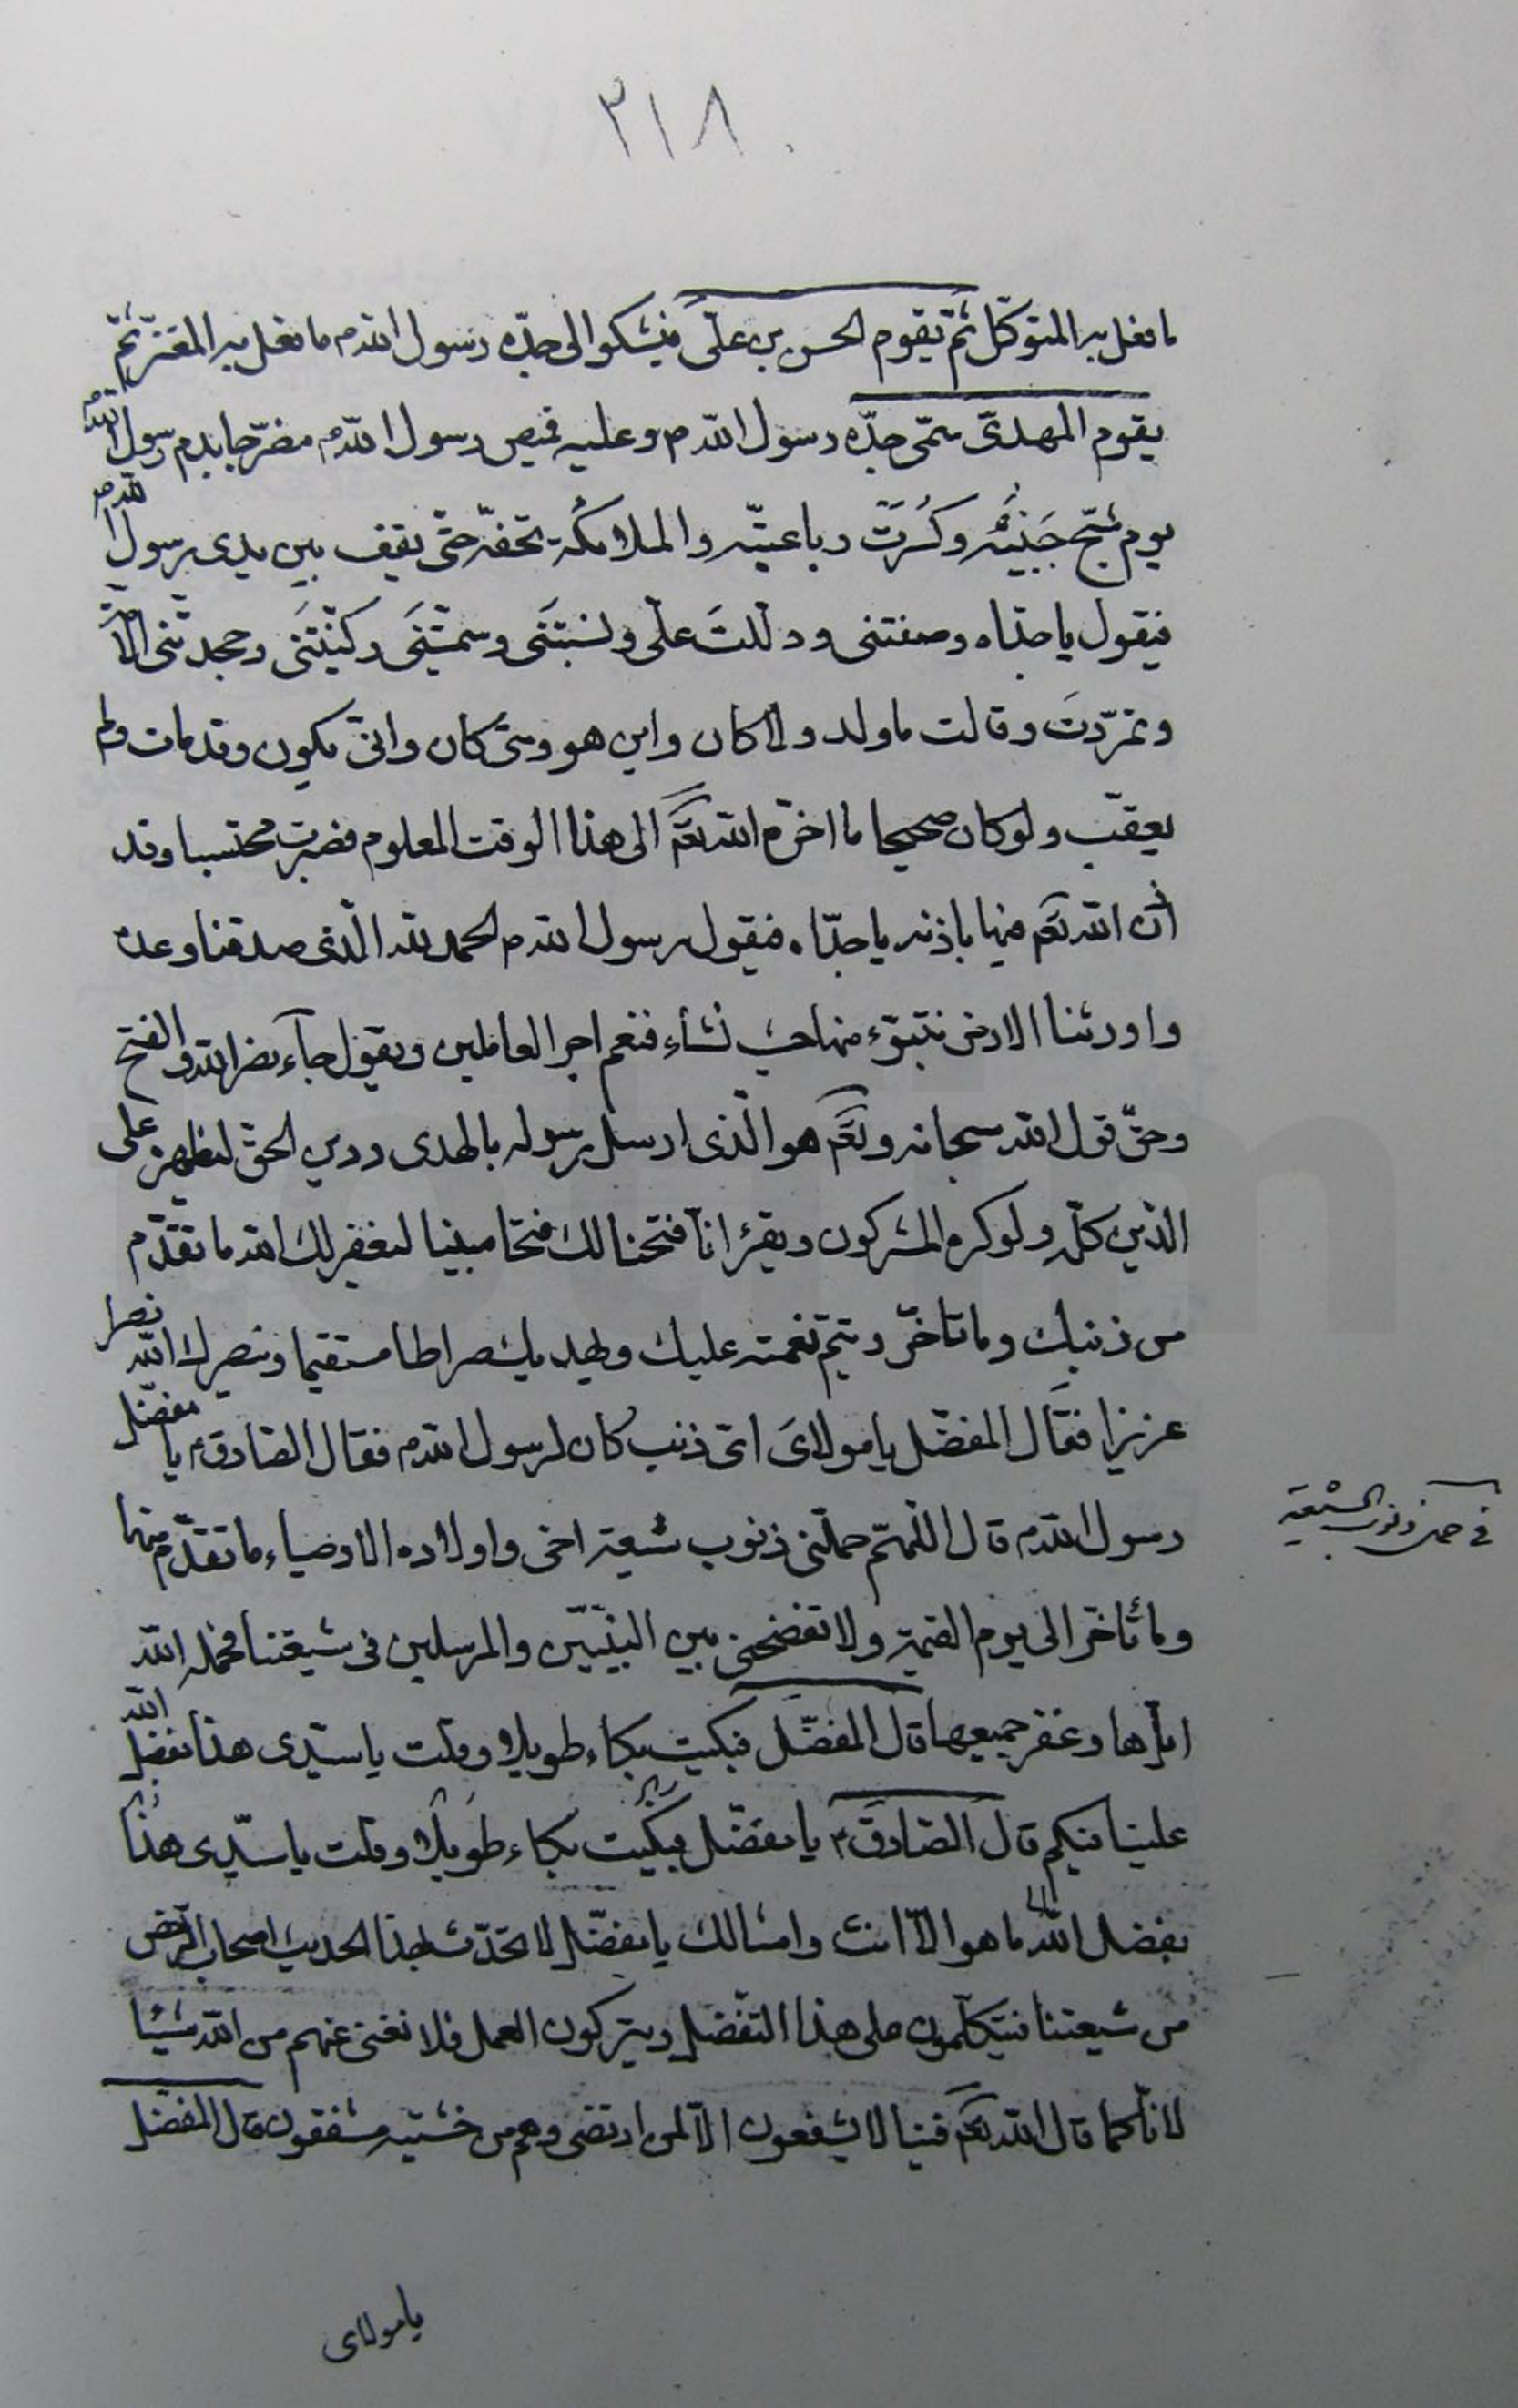 ٣١٨
ما فعل به المتوكّل ثمّ يقوم الحسن بن علىّ فيشكوا الى جدّه رسول اللّه ص ما فعل به المعتزّ ثمّ
يقوم المهدىّ سمّى جدّه رسول اللّه ص وعليه قميص رسول اللّه ص مضرّجا بدم رسول اللّه ص
يوم شجّ جَبينُه وكُسرَت رباعيّته والملائكة تحفّه حتّى يقف بين يدى رسول اللّه ص
فيقول يا جدّاه وصفتنى ودللتَ علىّ ونسبتَنى وسمّيتَنى وكنّيتَنى وجحدتنى الامّة
وتمرّدَت وقالت ما ولد ولا كان واين هو ومتى كان وانّى يكون وقد مات ولم
يعقّب ولو كان صحيحا ما اخّره اللّه تعَم الى هذا الوقت المعلوم فصبرت محتسبا وقد
أذن اللّه تعَم فيها باذنه يا جدّاه فيقول رسول اللّه ص الحمد للّه الّذى صدقنا وعده
واورثنا الارض نتبوّء منها حيث نشاء فنعم اجر العاملين ويقول جآء نصر اللّه والفتح
وحقّ قول اللّه سبحانه وتعَم هو الّذى ارسل رسوله بالهدى ودين الحقّ ليظهره على
الدّين كلّه ولو كره المشركون ويقرء انّا فتحنا لك فتحا مبينا ليغفر لك اللّه ما تقدّم
من ذنبك وما تاخّر ويتمّ نعمته عليك ويهديك صراطا مستقيما وينصرك اللّه نصرا
عزيزا فقَال المفضّل يا مولاىَ اىّ ذنب كان لرسول اللّه ص فقال الصّادق ع يا مفضّل
رسول اللّه ص قال اللّهمّ حمّلنى ذنوب شيعة اخى واولاده الاوصياء ما تقدّم منها
وما تأخّر الى يوم القيمة ولا تفضحنى بين النبيّين والمرسلين فى شيعتنا فحمله اللّه
ايّاها وغفر جميعها قال المفضّل فبكيت بكاء طويلا وقلت يا سيّدى هذا بفضل اللّه
علينا فيكم قال الصّادق ع يا مفضّل فبكيت بكاء طويلا وقلت يا سيّدى هذا
بفضل اللّه ما هو الّا انت وامثالك يا مفضّل لا تحدّث بهذا الحديث اصحاب الرّخص
من شيعتنا فيتكلمون على هذا التفضّل ويتركون العمل فلا نغنى عنهم من اللّه شيئا
لانّا كما قال اللّه تعَم فينا لا يشفعون الّا لمن ارتضى وهم من خشيته مشفقون قال المفضّل
يا مولاى
فى حمل ذنوب الشيعة